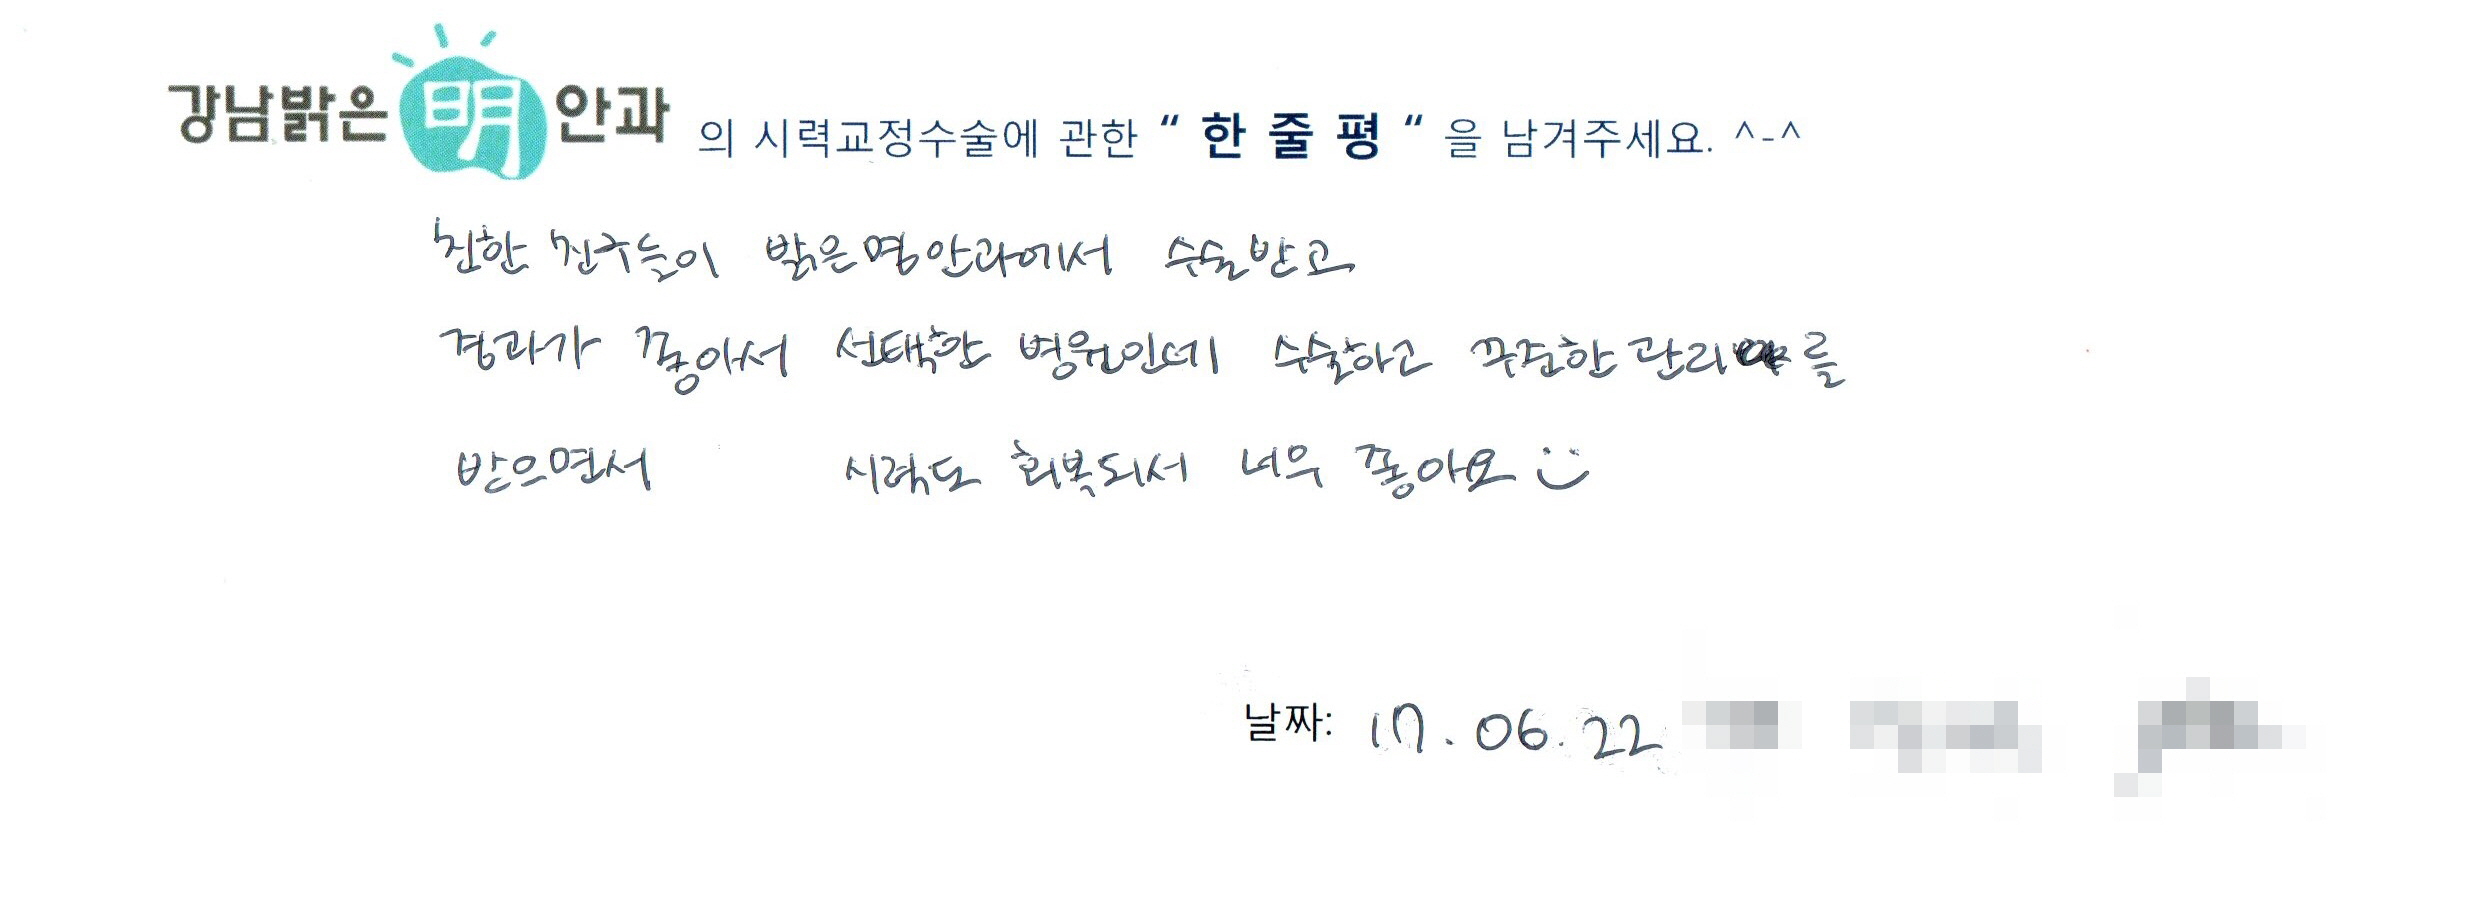 강남밝은明안과 의 시력교정수술에 관한 “ 한 줄 평 “ 을 남겨주세요. ^-^
친한 친구들이 밝은명안과에서 수술받고
경과가 좋아서 선택한 병원인데 수술하고 꾸준한 관리를
받으면서 시력도 회복되서 너무 좋아요
날짜: 17. 06. 22